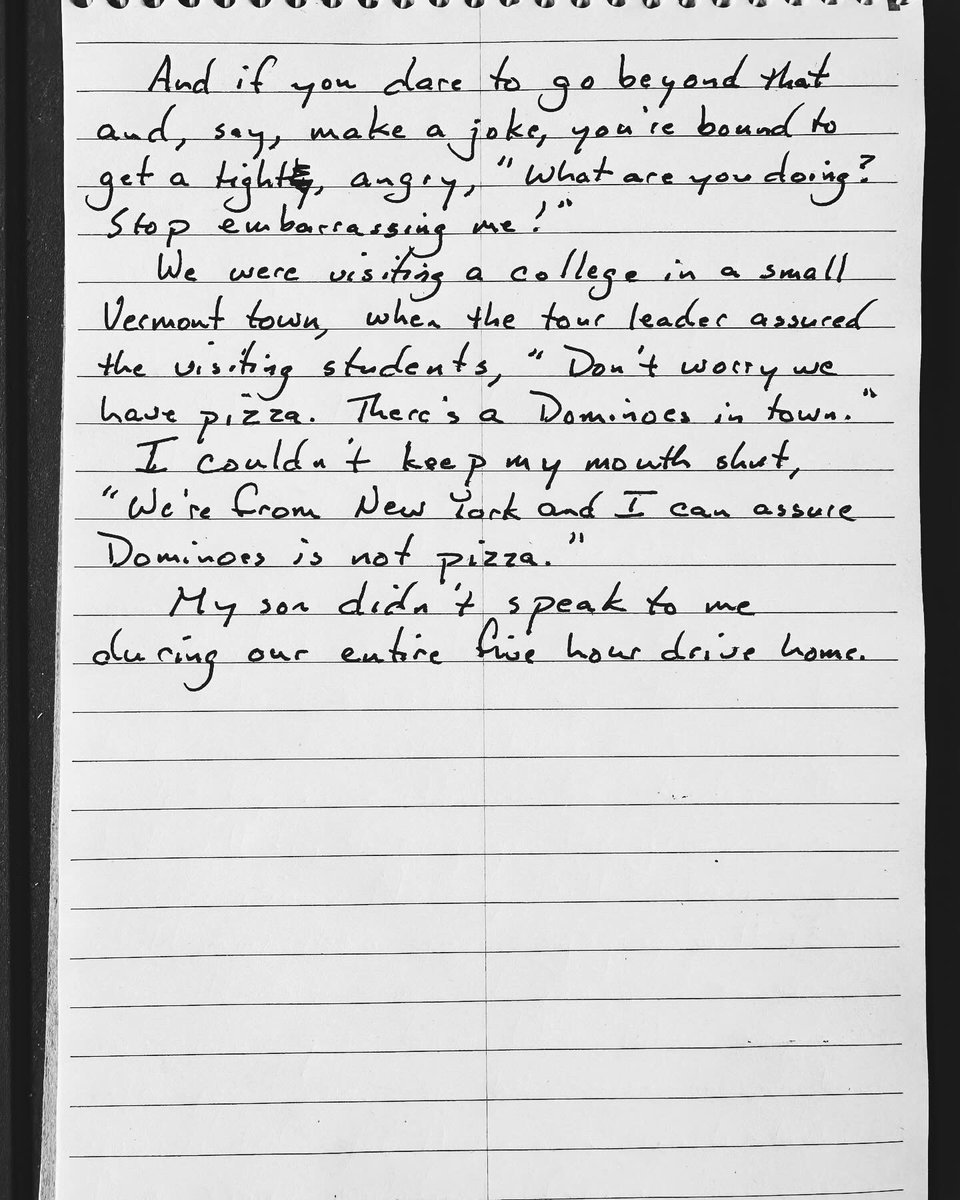 And if you dare to go beyond that
and, say, make a joke, you're bound to
get a tight, angry, "What are you doing?
Stop embarrassing me!"
We were visiting a college in a small
Vermont town, when the tour leader assured
the visiting students, "Don't worry we
have pizza. There's a Dominoes in town."
I couldn't keep my mouth shut,
"We're from New York and I can assure
Dominoes is not pizza."
My son didn't speak to me
during our entire five hour drive home.